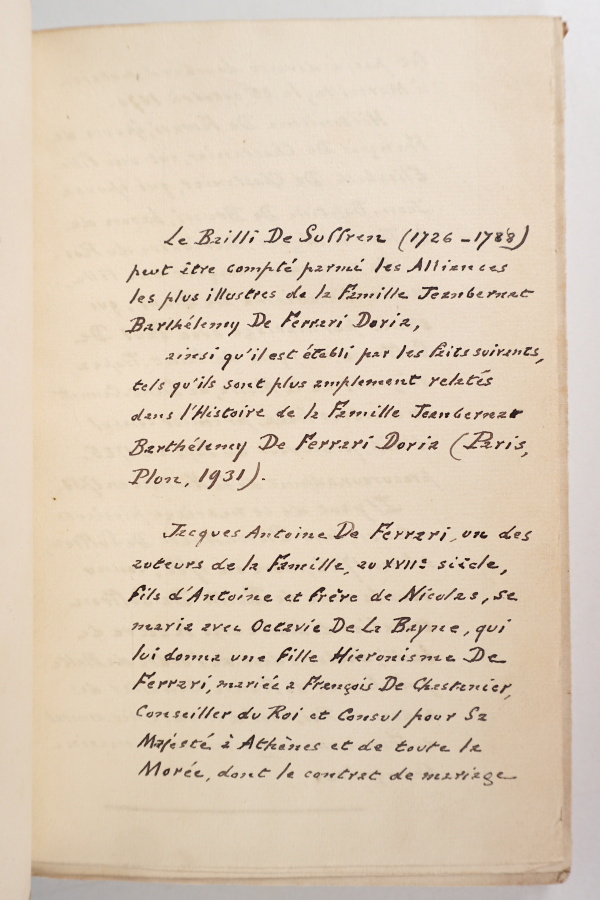 Le Bailli De Suffren (1726-1788)
peut être compté parmi les Alliances
les plus illustres de la Famille Jeanbernat
Barthélemy De Ferrari Doria,
ainsi qu'il est établi par les faits suivants,
tels qu'ils sont plus amplement relatés
dans l'Histoire de la Famille Jeanbernat
Barthélemy De Ferrari Doria (Paris,
Plon, 1931).
Jacques Antoine De Ferrari, un des
auteurs de la Famille, au XVIIe siècle,
fils d'Antoine et frère de Nicolas, se
maria avec Octavie De La Bayne, qui
lui donna une fille Hieronisme De
Ferrari, mariée a François De Chastanier,
Conseiller du Roi et Consul pour Sa
Majesté à Athènes et de toute la
Morée, dont le contrat de mariage